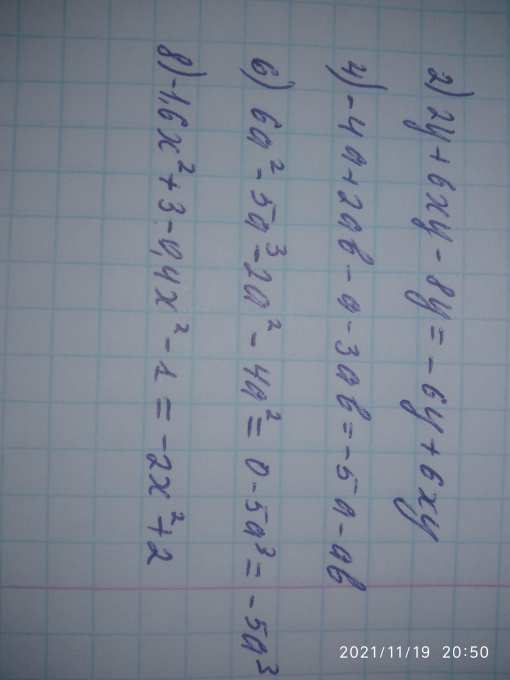 2) 2y + 6xy - 8y = -6y + 6xy
4) -4a + 2ab - a - 3ab = -5a - ab
6) 6a² - 5a³ - 2a² - 4a² = 0 - 5a³ = -5a³
8) -1,6x² + 3 - 0,4x² - 1 = -2x² + 2
2021/11/19 20:50